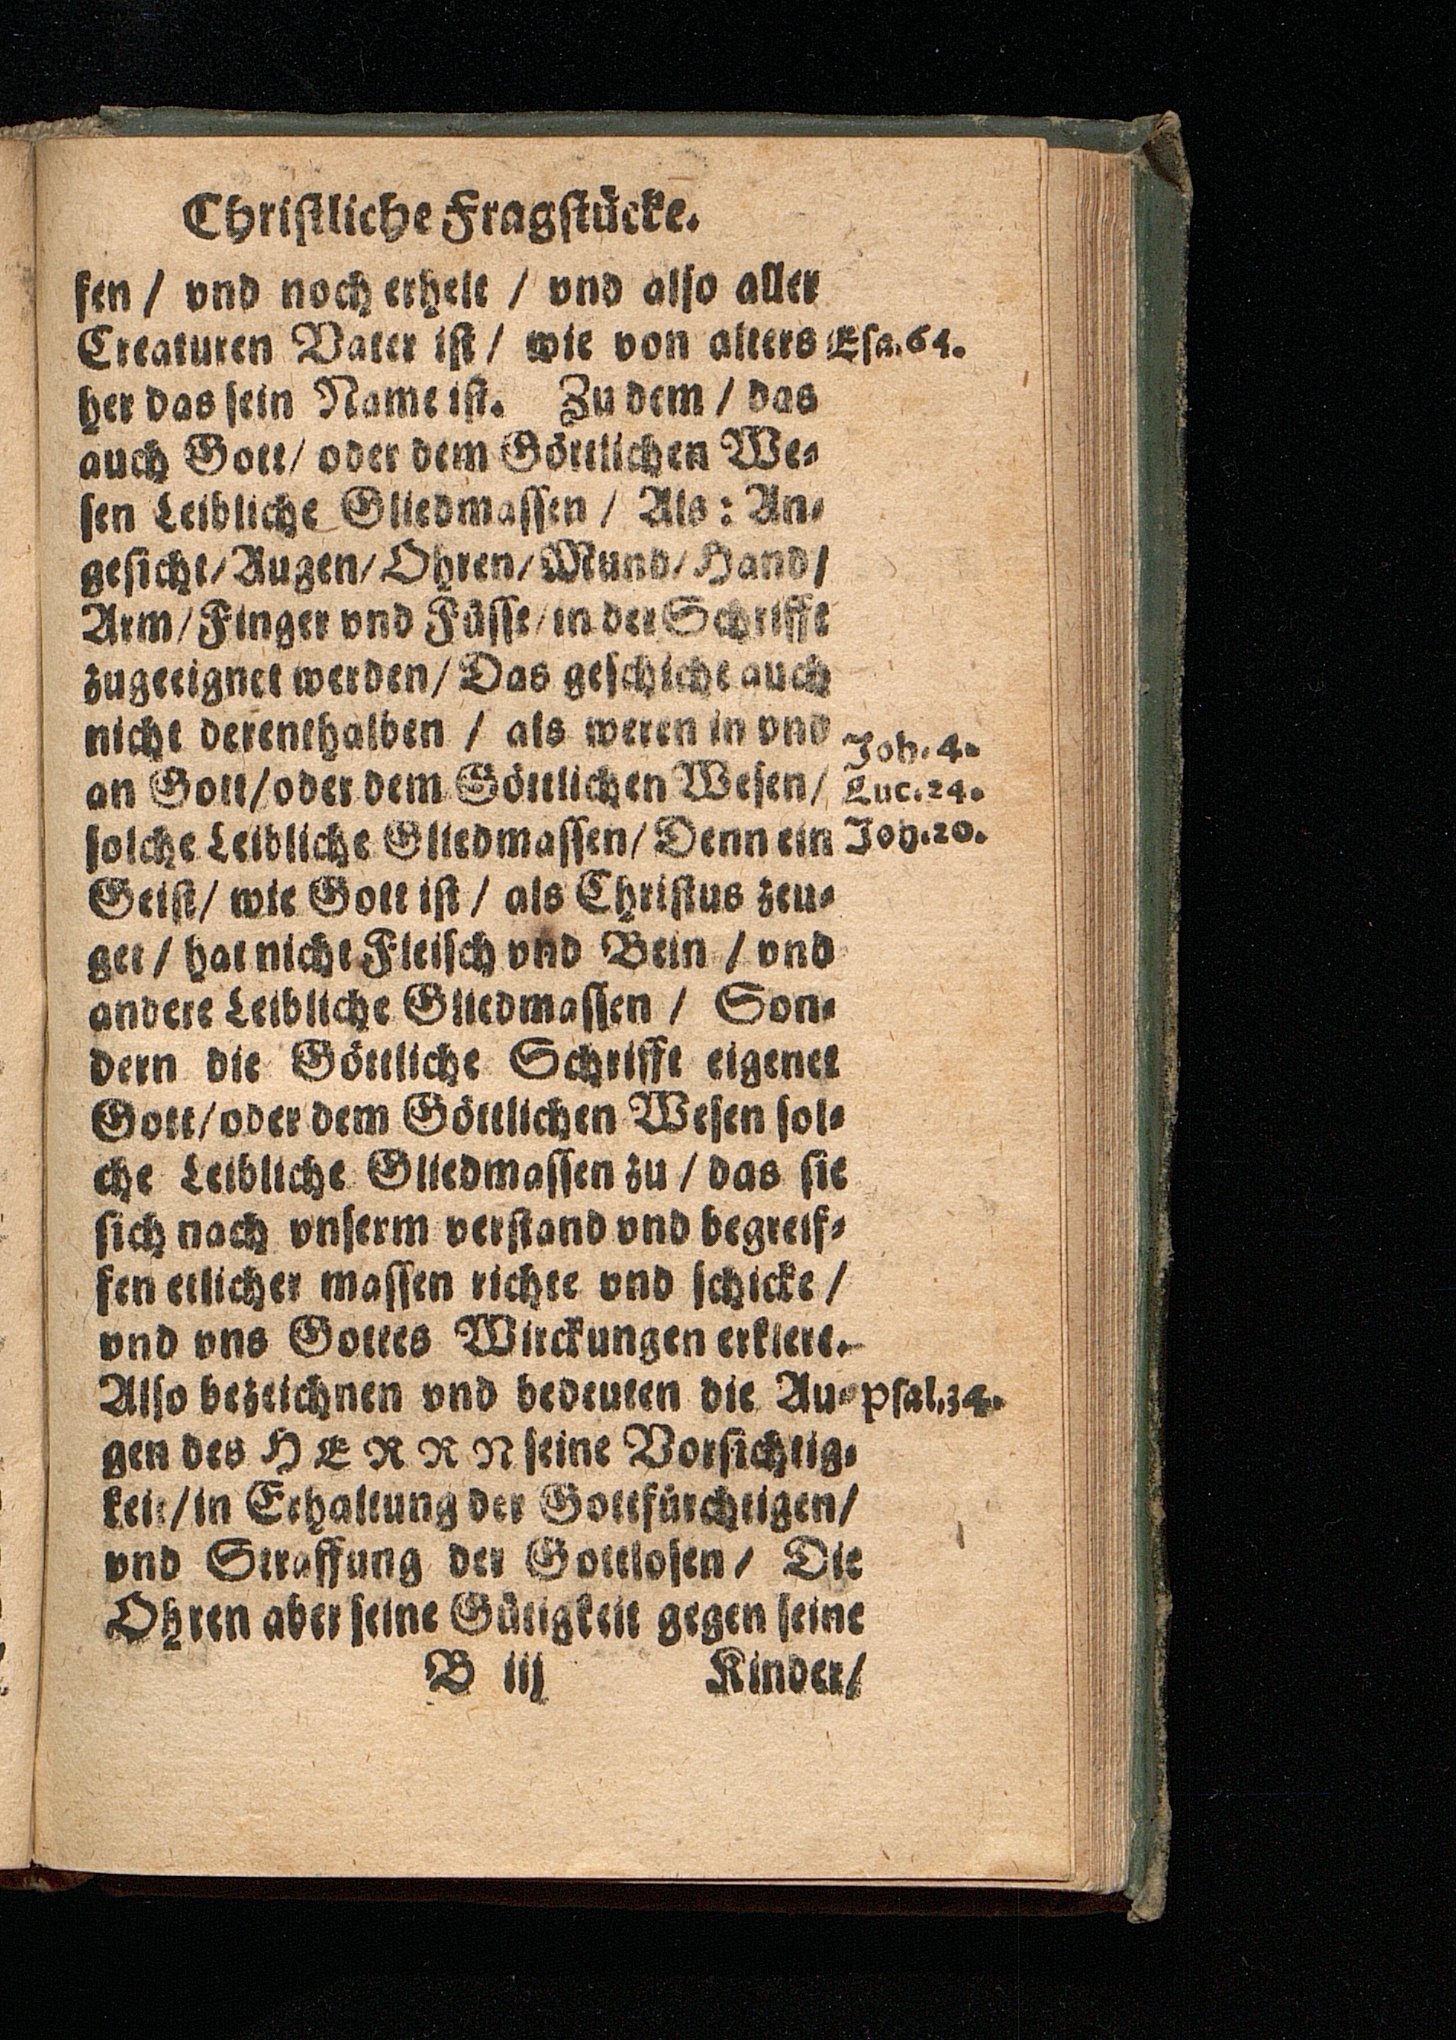 Christliche Fragstücke.
fen / vnd noch erhelt / vnd also aller
Creaturen Vater ist / wie von alters
Esa.64.
her das sein Name ist. Zu dem / das
auch Gott / oder dem Göttlichen We-
sen Leibliche Gliedmassen / Als : An-
gesicht / Augen / Ohren / Mund / Hand /
Arm / Finger vnd Füsse / in der Schrifft
zugeeignet werden / Das geschicht auch
nicht derenthalben / als weren in vnd
Joh. 4.
an Gott / oder dem Göttlichen Wesen /
Luc.24.
solche Leibliche Gliedmassen / Denn ein
Joh.20.
Geist / wie Gott ist / als Christus zeu-
get / hat nicht Fleisch vnd Bein / vnd
andere Leibliche Gliedmassen / Son-
dern die Göttliche Schrifft eigenet
Gott / oder dem Göttlichen Wesen sol-
che Leibliche Gliedmassen zu / das sie
sich nach vnserm verstand vnd begreif-
fen etlicher massen richte vnd schicke /
vnd vns Gottes Wirckungen erklere.
Also bezeichnen vnd bedeuten die Au-
Psal.34.
gen des HERRN seine Vorsichtig-
keit / in Erhaltung der Gottfürchtigen /
vnd Straffung der Gottlosen / Die
Ohren aber seine Gütigkeit gegen seine
B iij
Kinder /